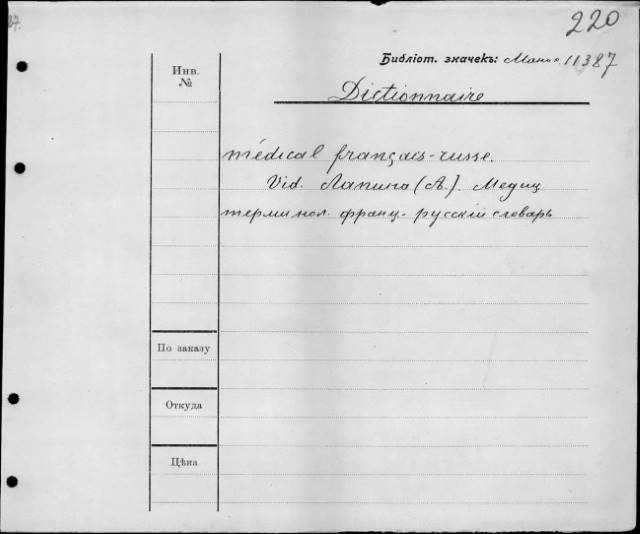 220
Библіот. значекъ: 11387
Инв.
№
Dictionnaire
médical français-russe.
Vid. Лапина (А.). Медиц
терминол. франц.-русскій словарь
По заказу
Откуда
Цѣна